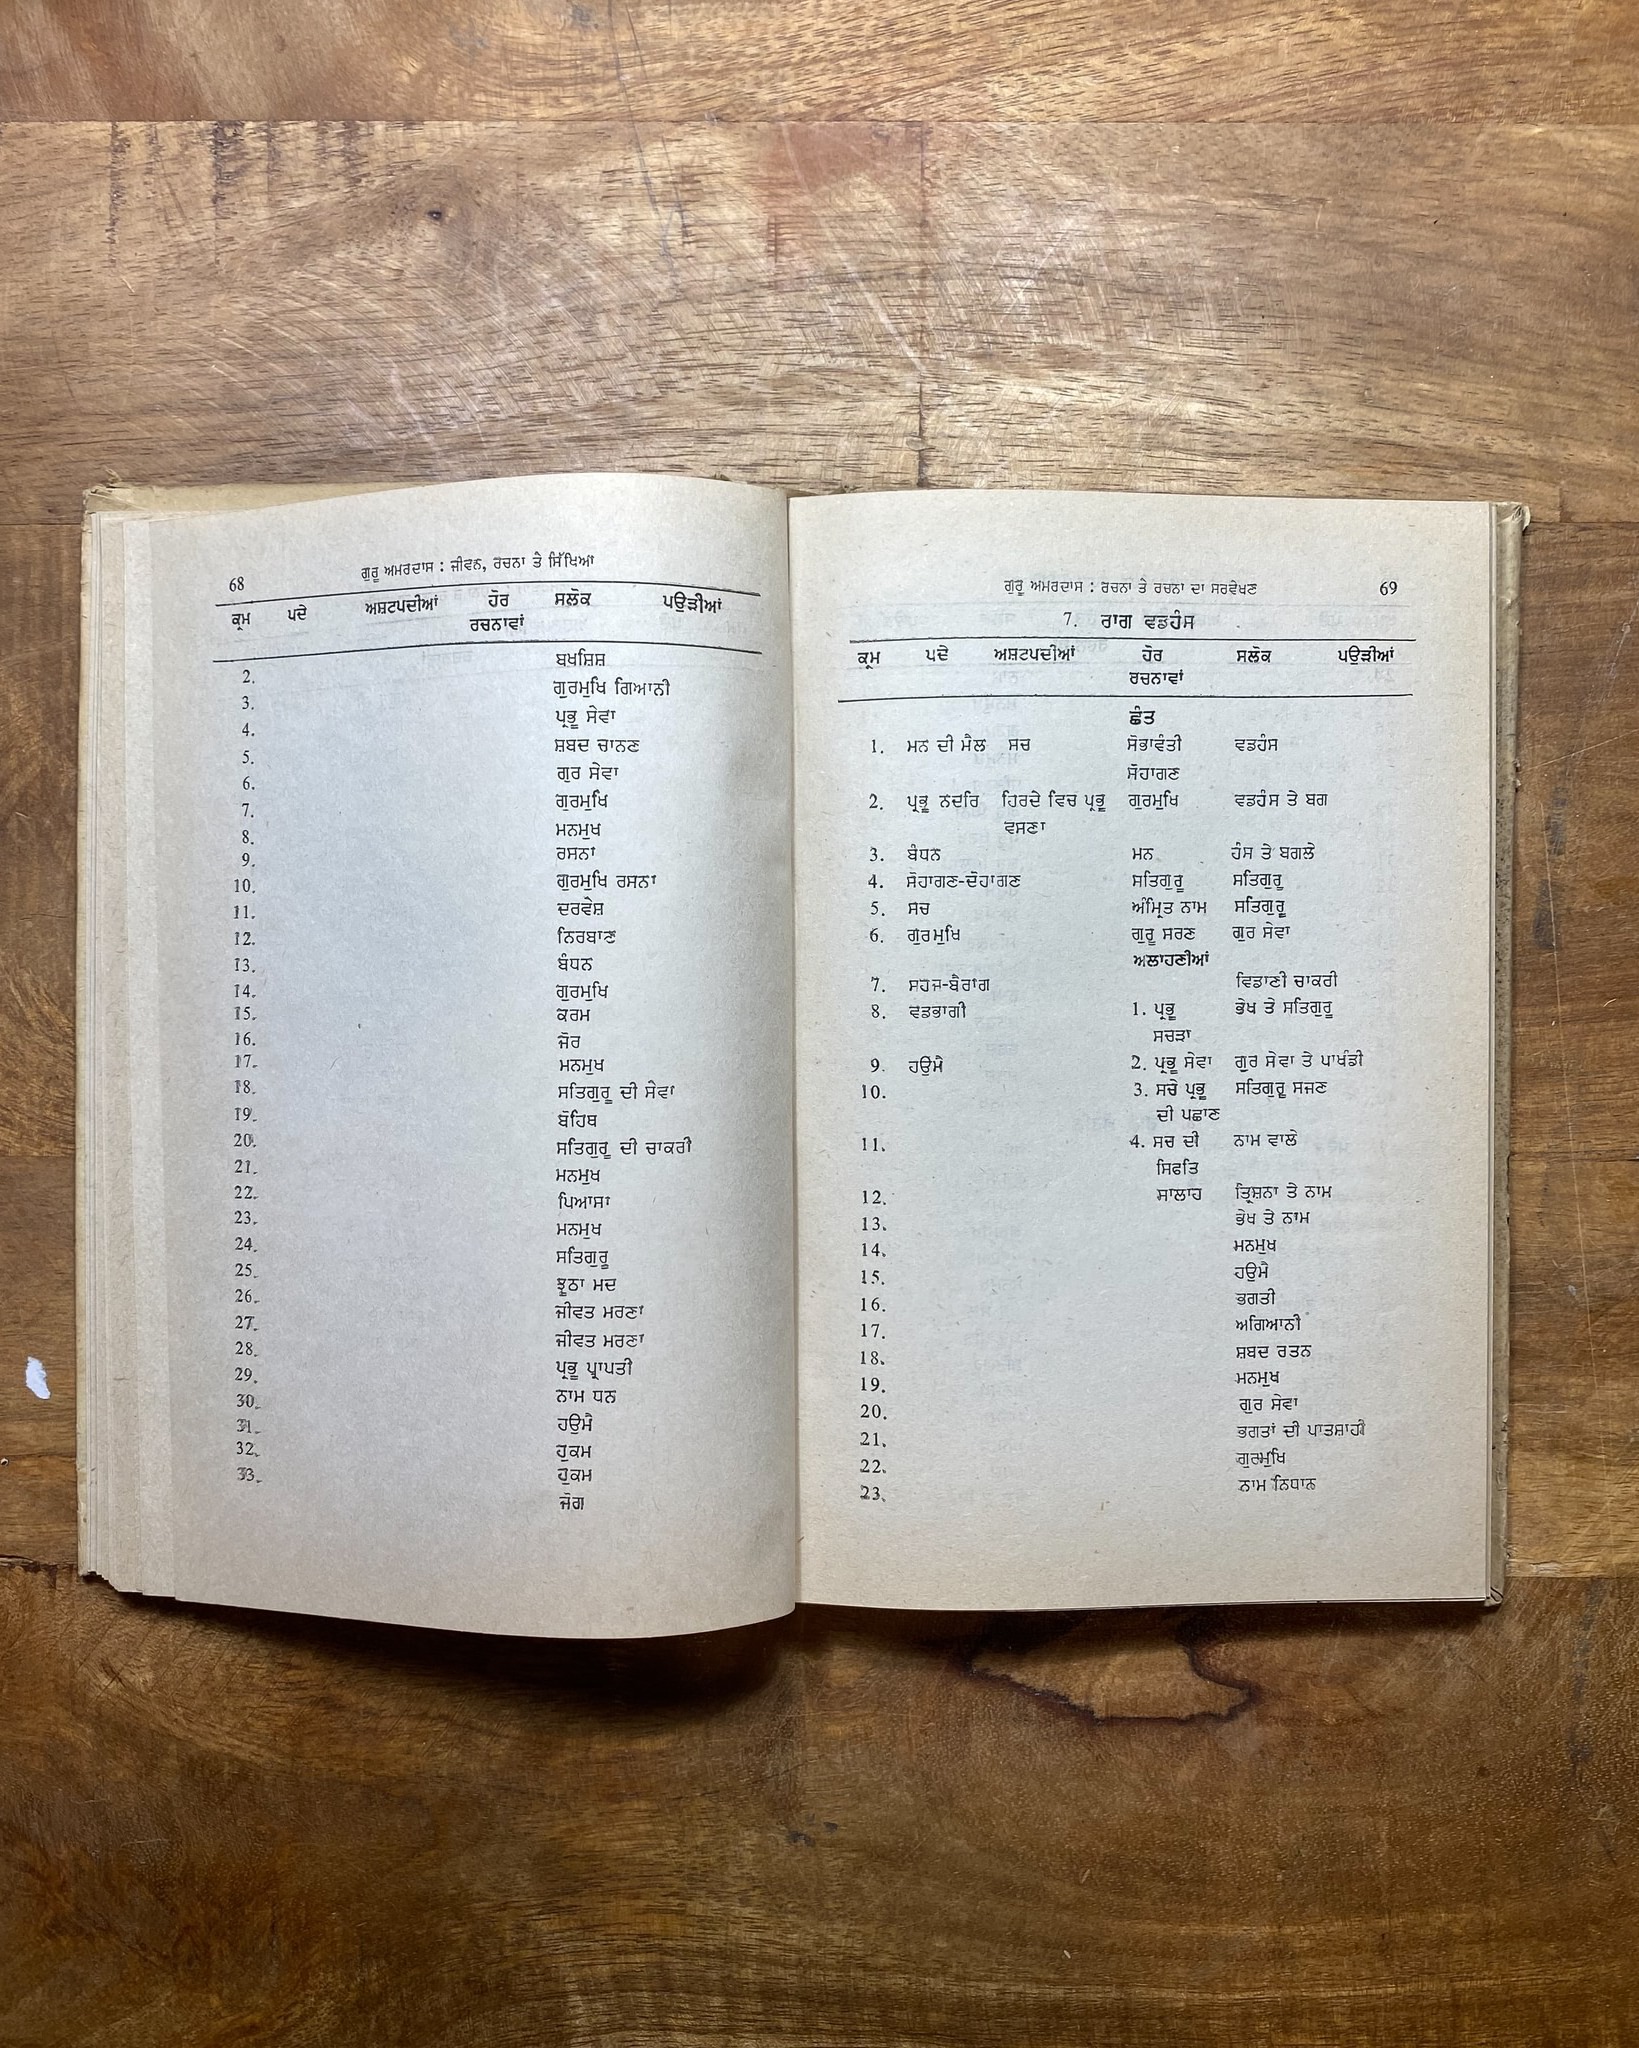 68
ਗੁਰੂ ਅਮਰਦਾਸ : ਜੀਵਨ, ਰਚਨਾ ਤੇ ਸਿੱਖਿਆ
ਕ੍ਰਮ ਪਦੇ ਅਸ਼ਟਪਦੀਆਂ ਹੋਰ ਸਲੋਕ ਪਉੜੀਆਂ
ਰਚਨਾਵਾਂ
2. ਬਖਸ਼ਿਸ਼
3. ਗੁਰਮੁਖਿ ਗਿਆਨੀ
4. ਪ੍ਰਭੂ ਸੇਵਾ
5. ਸ਼ਬਦ ਚਾਨਣ
6. ਗੁਰ ਸੇਵਾ
7. ਗੁਰਮੁਖਿ
8. ਮਨਮੁਖ
9. ਰਸਨਾ
10. ਗੁਰਮੁਖਿ ਰਸਨਾ
11. ਦਰਵੇਸ਼
12. ਨਿਰਬਾਣ
13. ਬੰਧਨ
14. ਗੁਰਮੁਖਿ
15. ਕਰਮ
16. ਜੋਰ
17. ਮਨਮੁਖ
18. ਸਤਿਗੁਰੂ ਦੀ ਸੇਵਾ
19. ਬੋਹਿਥ
20. ਸਤਿਗੁਰੂ ਦੀ ਚਾਕਰੀ
21. ਮਨਮੁਖ
22. ਪਿਆਸਾ
23. ਮਨਮੁਖ
24. ਸਤਿਗੁਰੂ
25. ਝੂਠਾ ਮਦ
26. ਜੀਵਤ ਮਰਣਾ
27. ਜੀਵਤ ਮਰਣਾ
28. ਪ੍ਰਭੂ ਪ੍ਰਾਪਤੀ
29. ਨਾਮ ਧਨ
30. ਹਉਮੈ
31. ਹੁਕਮ
32. ਹੁਕਮ
33. ਜੋਗ
ਗੁਰੂ ਅਮਰਦਾਸ : ਰਚਨਾ ਤੇ ਰਚਨਾ ਦਾ ਸਰਵੇਖਣ 69
7. ਰਾਗ ਵਡਹੰਸ
ਕ੍ਰਮ ਪਦੇ ਅਸ਼ਟਪਦੀਆਂ ਹੋਰ ਸਲੋਕ ਪਉੜੀਆਂ
ਰਚਨਾਵਾਂ
ਛੰਤ
1. ਮਨ ਦੀ ਮੈਲ ਸਚ ਸੋਭਾਵੰਤੀ ਵਡਹੰਸ
ਸੋਹਾਗਣ
2. ਪ੍ਰਭੂ ਨਦਰਿ ਹਿਰਦੇ ਵਿਚ ਪ੍ਰਭੂ ਗੁਰਮੁਖਿ ਵਡਹੰਸ ਤੇ ਬਗ
ਵਸਣਾ
3. ਬੰਧਨ ਮਨ ਹੰਸ ਤੇ ਬਗਲੇ
4. ਸੋਹਾਗਣ-ਦੋਹਾਗਣ ਸਤਿਗੁਰੂ ਸਤਿਗੁਰੂ
5. ਸਚ ਅੰਮ੍ਰਿਤ ਨਾਮ ਸਤਿਗੁਰੂ
6. ਗੁਰਮੁਖਿ ਗੁਰੂ ਸਰਣ ਗੁਰ ਸੇਵਾ
ਅਲਾਹਣੀਆਂ
7. ਸਹਜ-ਬੈਰਾਗ ਵਿਡਾਣੀ ਚਾਕਰੀ
8. ਵਡਭਾਗੀ 1. ਪ੍ਰਭੂ ਭੇਖ ਤੇ ਸਤਿਗੁਰੂ
ਸਚੜਾ
9. ਹਉਮੈ 2. ਪ੍ਰਭੂ ਸੇਵਾ ਗੁਰ ਸੇਵਾ ਤੇ ਪਾਖੰਡੀ
10. 3. ਸਚੇ ਪ੍ਰਭੂ ਸਤਿਗੁਰੂ ਸਜਣ
ਦੀ ਪਛਾਣ
11. 4. ਸਚ ਦੀ ਨਾਮ ਵਾਲੇ
ਸਿਫਤਿ
12. ਸਾਲਾਹ ਤ੍ਰਿਸ਼ਨਾ ਤੇ ਨਾਮ
13. ਭੇਖ ਤੇ ਨਾਮ
14. ਮਨਮੁਖ
15. ਹਉਮੈ
16. ਭਗਤੀ
17. ਅਗਿਆਨੀ
18. ਸ਼ਬਦ ਰਤਨ
19. ਮਨਮੁਖ
20. ਗੁਰ ਸੇਵਾ
21. ਭਗਤਾਂ ਦੀ ਪਾਤਸ਼ਾਹੀ
22. ਗੁਰਮੁਖਿ
23. ਨਾਮ ਨਿਧਾਨ